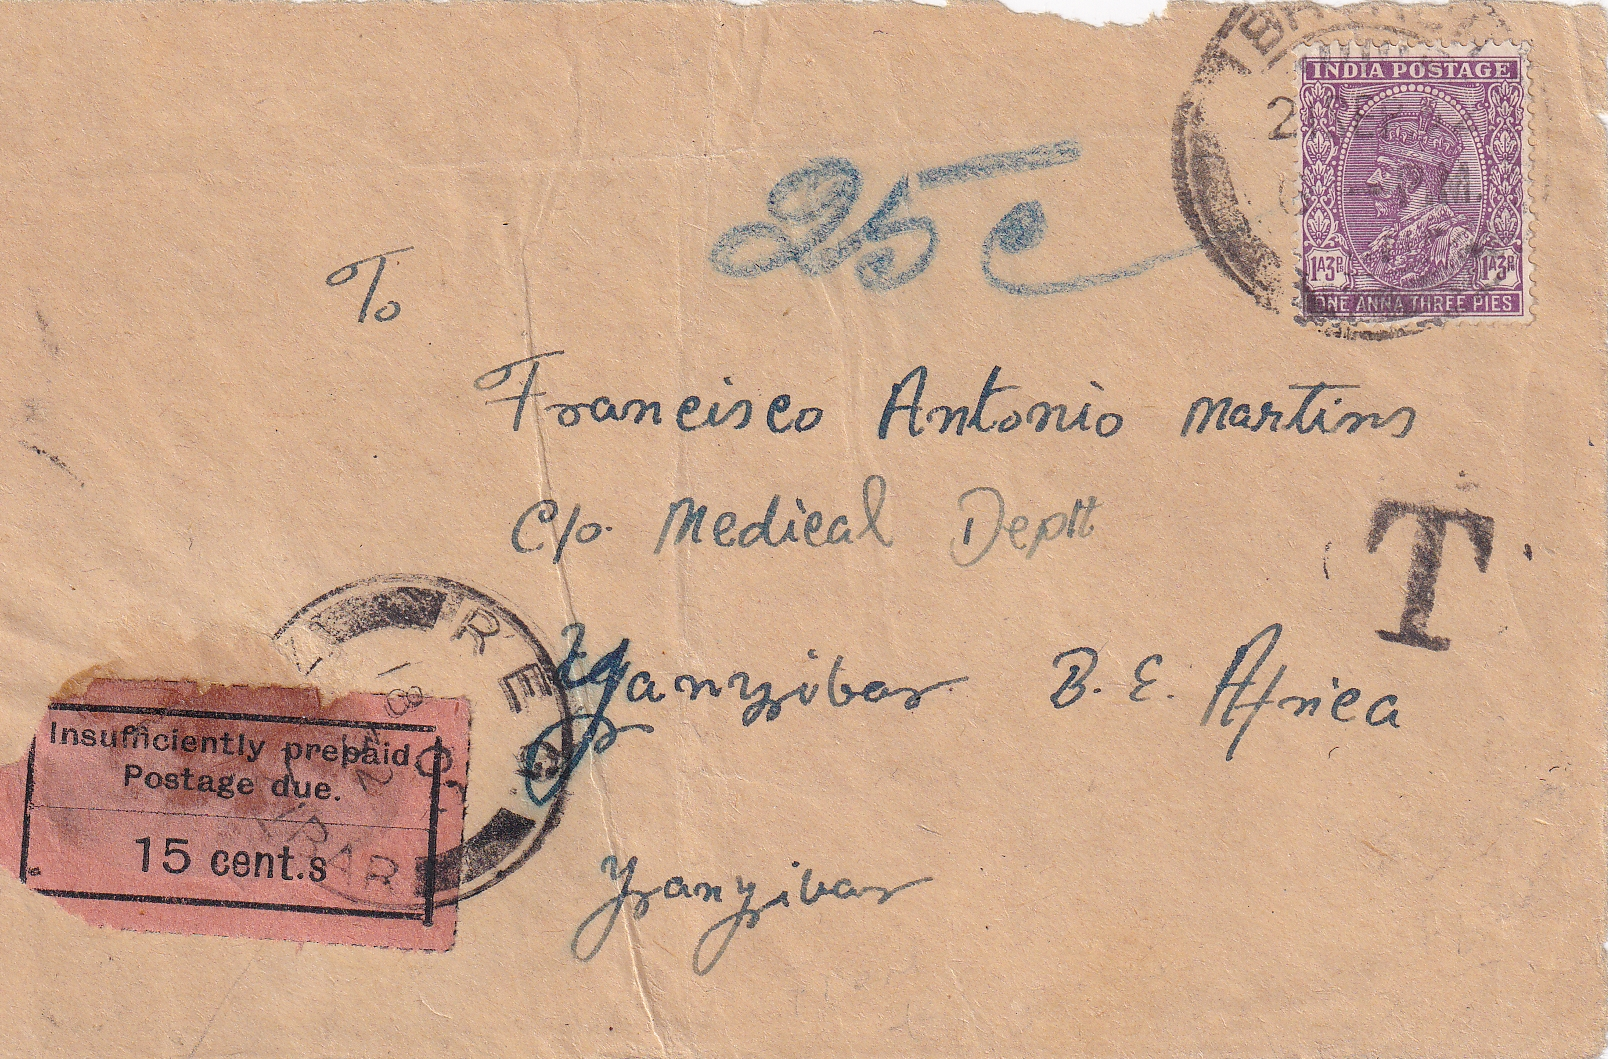 INDIA POSTAGE
1A3P 1A3P
ONE ANNA THREE PIES
25 c
To
Francisco Antonio Martins
C/o. Medical Deptt
T
Zanzibar B. E. Africa
Zanzibar
REG
ZIBAR
Insufficiently prepaid.
Postage due.
15 cent.s